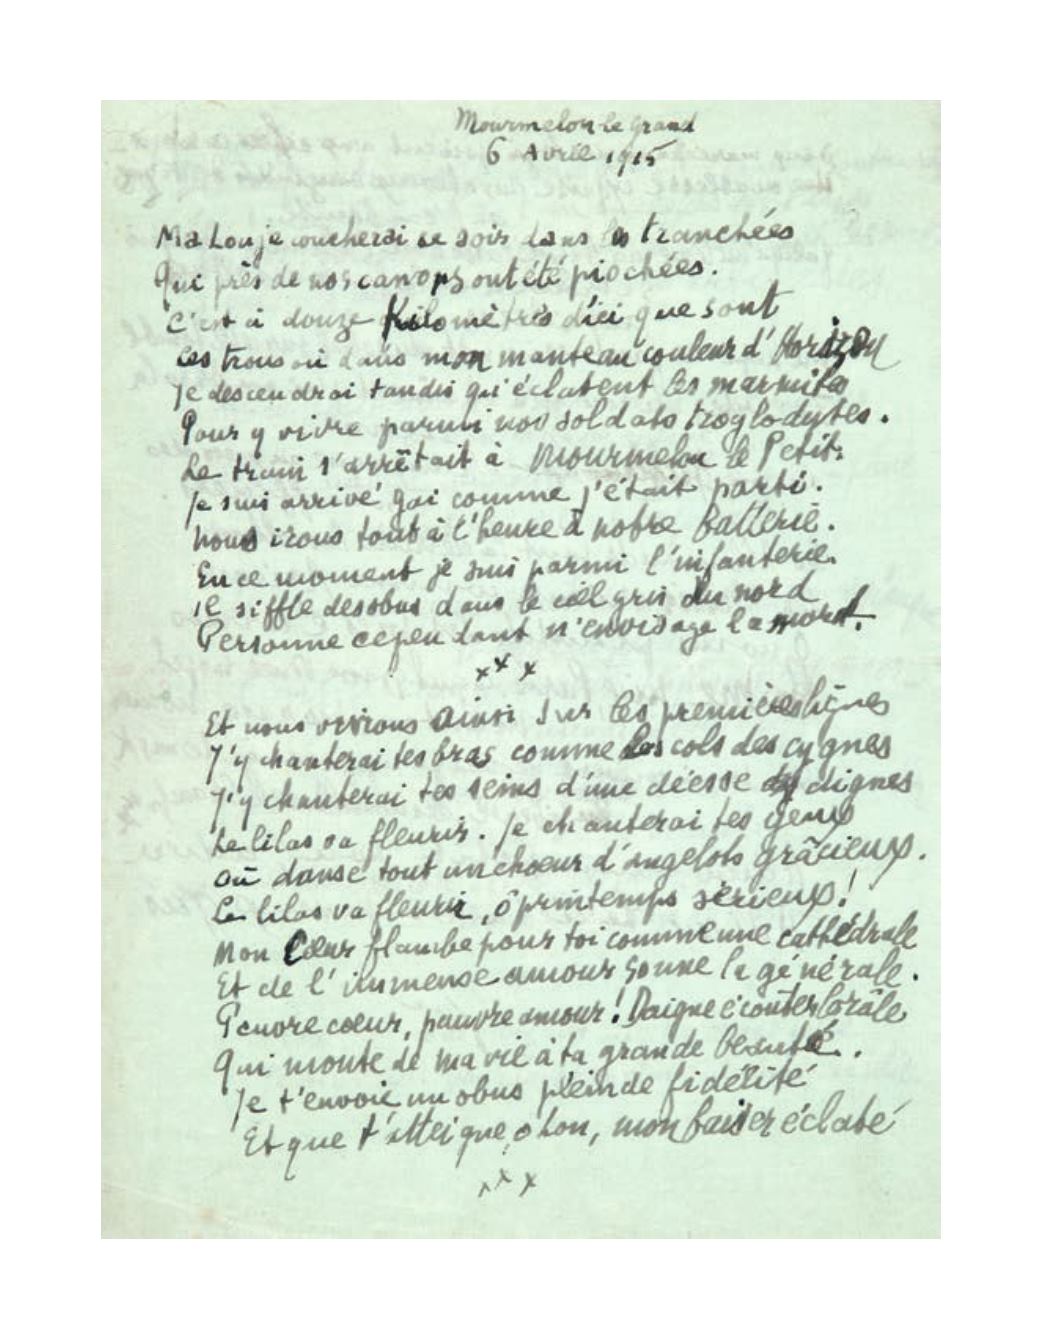 Mourmelon-le Grand
6 Avril 1915
Ma Lou je coucherai ce soir dans les tranchées
Qui près de nos canons ont été piochées.
C'est à douze Kilomètres d'ici que sont
ces trous où dans mon manteau couleur d'Horizon
Je descendrai tandis qu'éclatent les marmites
Pour y vivre parmi nos soldats troglodytes.
Le train s'arrêtait à Mourmelon le Petit.
Je suis arrivé gai comme j'était parti.
Nous irons tout à l'heure à notre batterie.
En ce moment je suis parmi l'infanterie.
Il siffle des obus dans le ciel gris du nord
Personne cependant n'envisage la mort.
x x x
Et nous vivrons ainsi sur les premières lignes
J'y chanterai tes bras comme les cols des cygnes
J'y chanterai tes seins d'une déesse dignes
Le lilas va fleurir. Je chanterai tes yeux
où danse tout un choeur d'angelots grâcieux.
Le lilas va fleurir, ô printemps sérieux!
Mon Cœur flambe pour toi comme une cathédrale
Et de l'immense amour sonne la générale.
Pauvre cœur, pauvre amour! Daigne écouter le râle
Qui monte de ma vie à ta grande beauté.
Je t'envoie un obus plein de fidélité
Et que t'atteigne, ô Lou, mon baiser éclaté
x x x